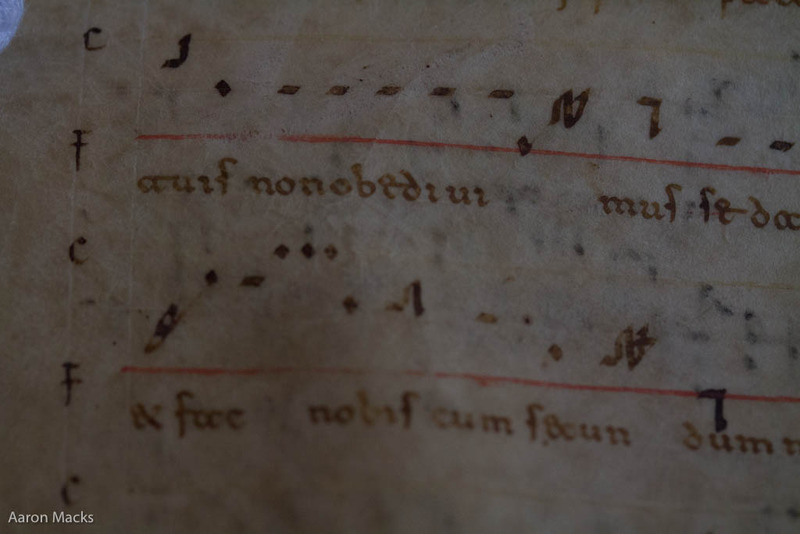 C
F
tuis non obediui mus sed da
C
F
& fac nobis cum secun dum m
C
Aaron Macks